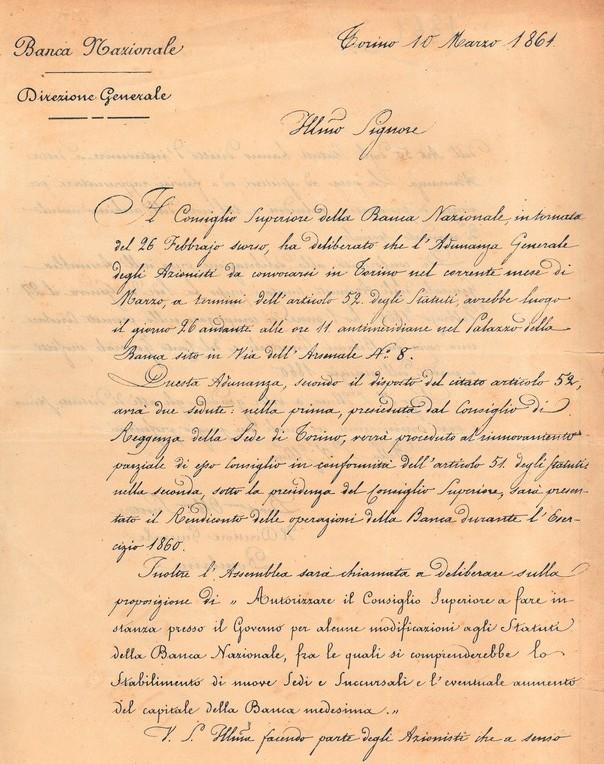 Banca Nazionale
Direzione Generale
Torino 10 Marzo 1861.
Illmo Signore
Il Consiglio Superiore della Banca Nazionale, in tornata
del 26 Febbrajo scorso, ha deliberato che l'Adunanza Generale
degli Azionisti da convocarsi in Torino nel corrente mese di
Marzo, a termini dell'articolo 52. degli Statuti, avrebbe luogo
il giorno 26 andante alle ore 11 antimeridiane nel Palazzo della
Banca sito in Via dell'Arsenale No. 8.
Questa Adunanza, secondo il disposto del citato articolo 52,
avrà due sedute: nella prima, presieduta dal Consiglio di
Reggenza della Sede di Torino, verrà proceduto al rinnovamento
parziale di esso Consiglio in conformità dell'articolo 51. degli Statuti:
nella seconda, sotto la presidenza del Consiglio Superiore, sarà presen-
tato il Rendiconto delle operazioni della Banca durante l'Eser-
cizio 1860.
Inoltre l'Assemblea sarà chiamata a deliberare sulla
proposizione di „ Autorizzare il Consiglio Superiore a fare in
stanza presso il Governo per alcune modificazioni agli Statuti
della Banca Nazionale, fra le quali si comprenderebbe lo
Stabilimento di nuove Sedi e Succursali e l'eventuale aumento
del capitale della Banca medesima. „
V. S. Illma facendo parte degli Azionisti che a senso